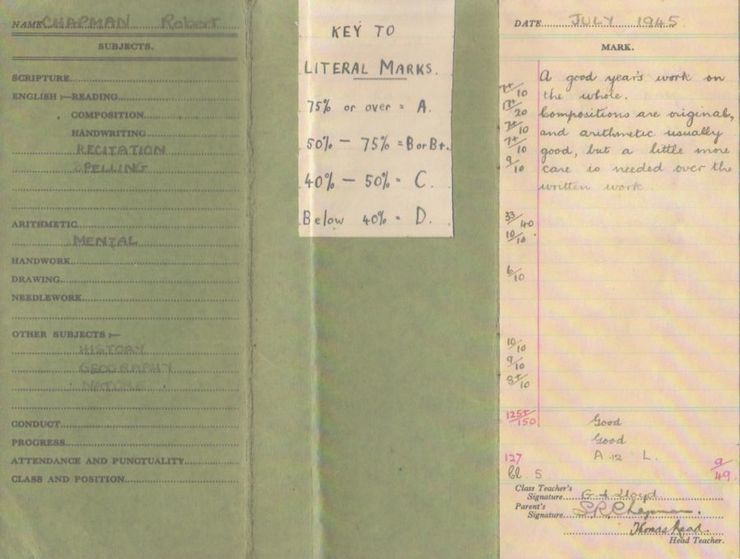 NAME CHAPMAN Robert
SUBJECTS.
SCRIPTURE
ENGLISH :—READING
COMPOSITION
HANDWRITING
RECITATION
SPELLING
ARITHMETIC
MENTAL
HANDWORK
DRAWING
NEEDLEWORK
OTHER SUBJECTS :—
HISTORY
GEOGRAPHY
NATURE
CONDUCT
PROGRESS
ATTENDANCE AND PUNCTUALITY
CLASS AND POSITION
KEY TO
LITERAL MARKS.
75% or over = A.
50% – 75% = B or B+.
40% – 50% = C.
Below 40% = D.
DATE JULY 1945
MARK.
A good year's work on
the whole.
Compositions are original,
and arithmetic usually
good, but a little more
care is needed over the
written work
7+/10
13+/20
7+/10
7+/10
9/10
33/40
10/10
6/10
10/10
9/10
8+/10
125+/150
Good
Good
127 A 12 L.
Cl. 5 9/49
Class Teacher's
Signature Lloyd
Parent's
Signature S.R. Chapman
Thomas Read
Head Teacher.